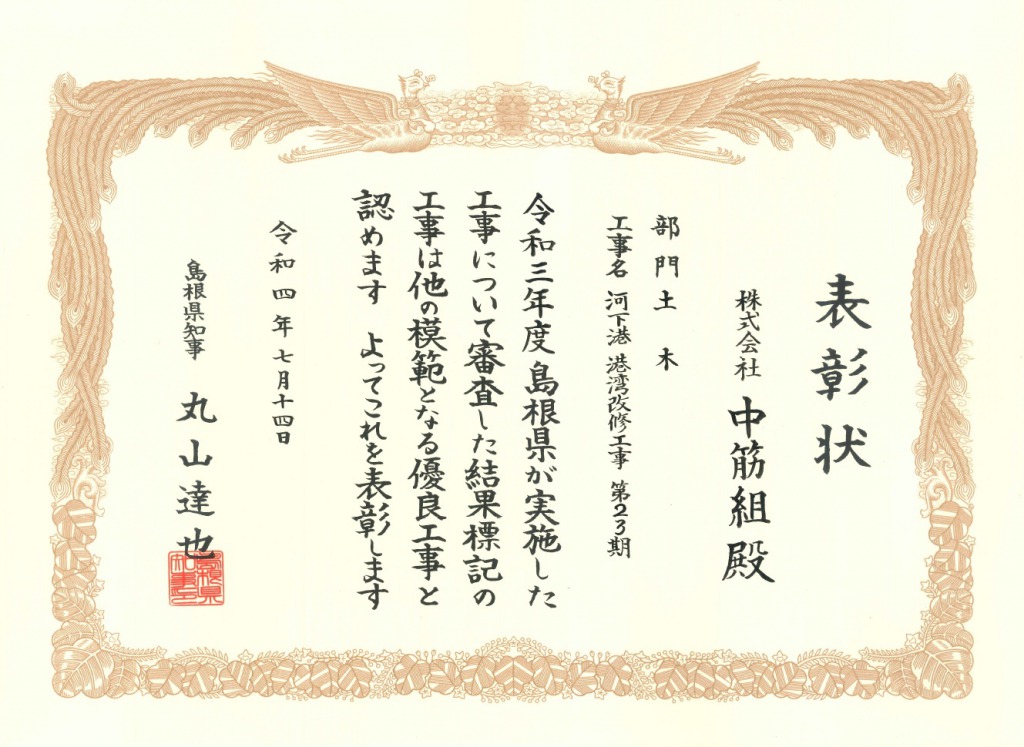 表彰状
株式会社 中筋組殿
部門 土 木
工事名 河下港 港湾改修工事 第23期
令和三年度島根県が実施した
工事について審査した結果標記の
工事は他の模範となる優良工事と
認めます よってこれを表彰します
令和四年七月十四日
島根県知事 丸山達也
島根県
知事之印